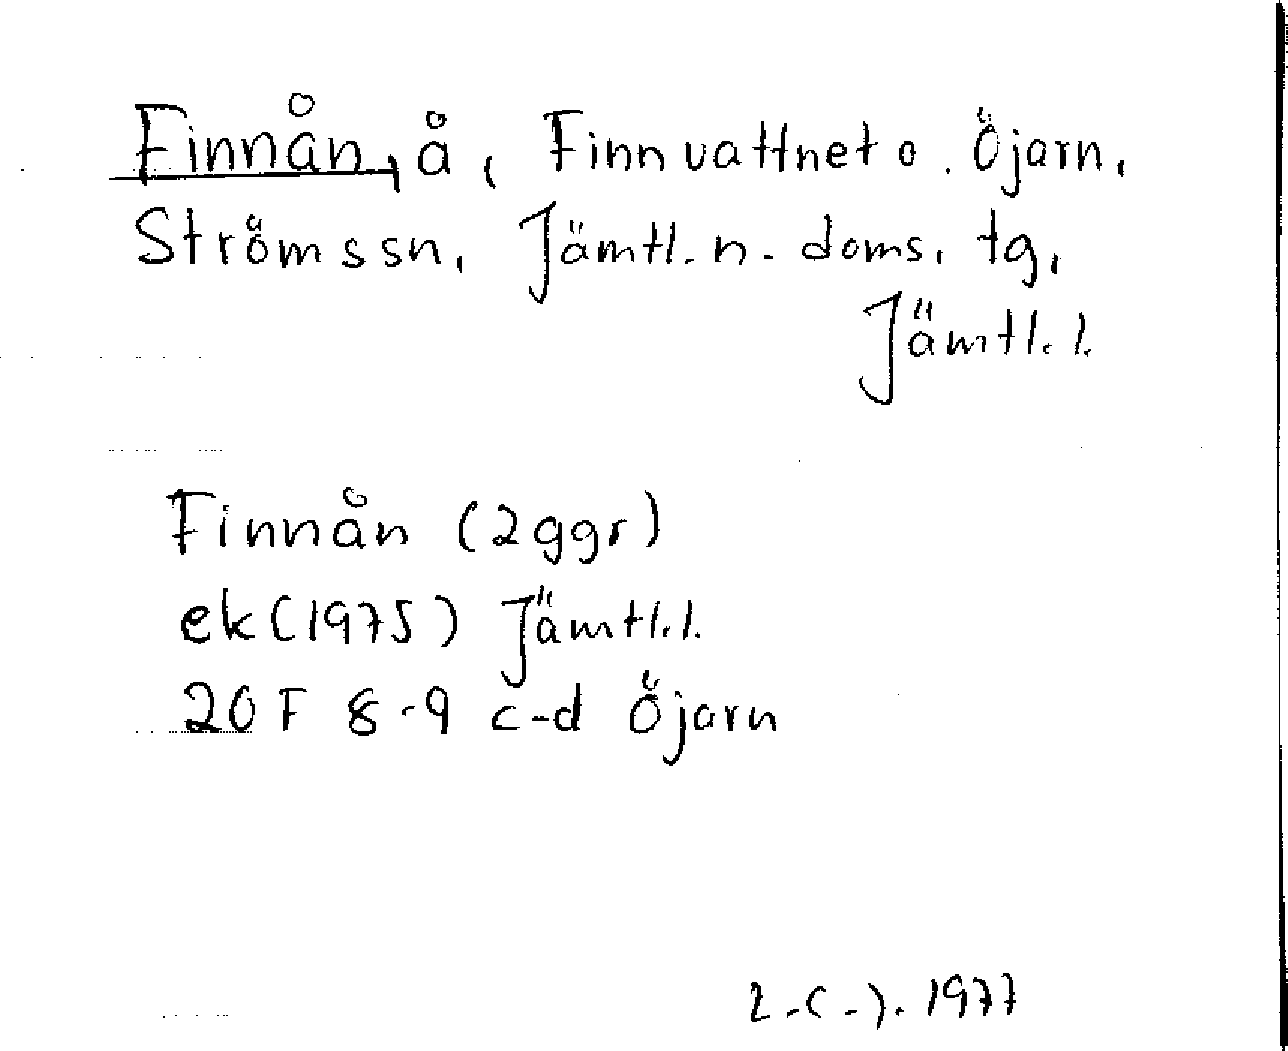 Finnån, å, Finnvattnet o. Öjarn,
Ströms sn, Jämtl. n. doms. tg,
Jämtl. l.
Finnån (2 ggr)
ek (1975) Jämtl. l.
20 F 8-9 c-d Öjarn
2.(-). 1977